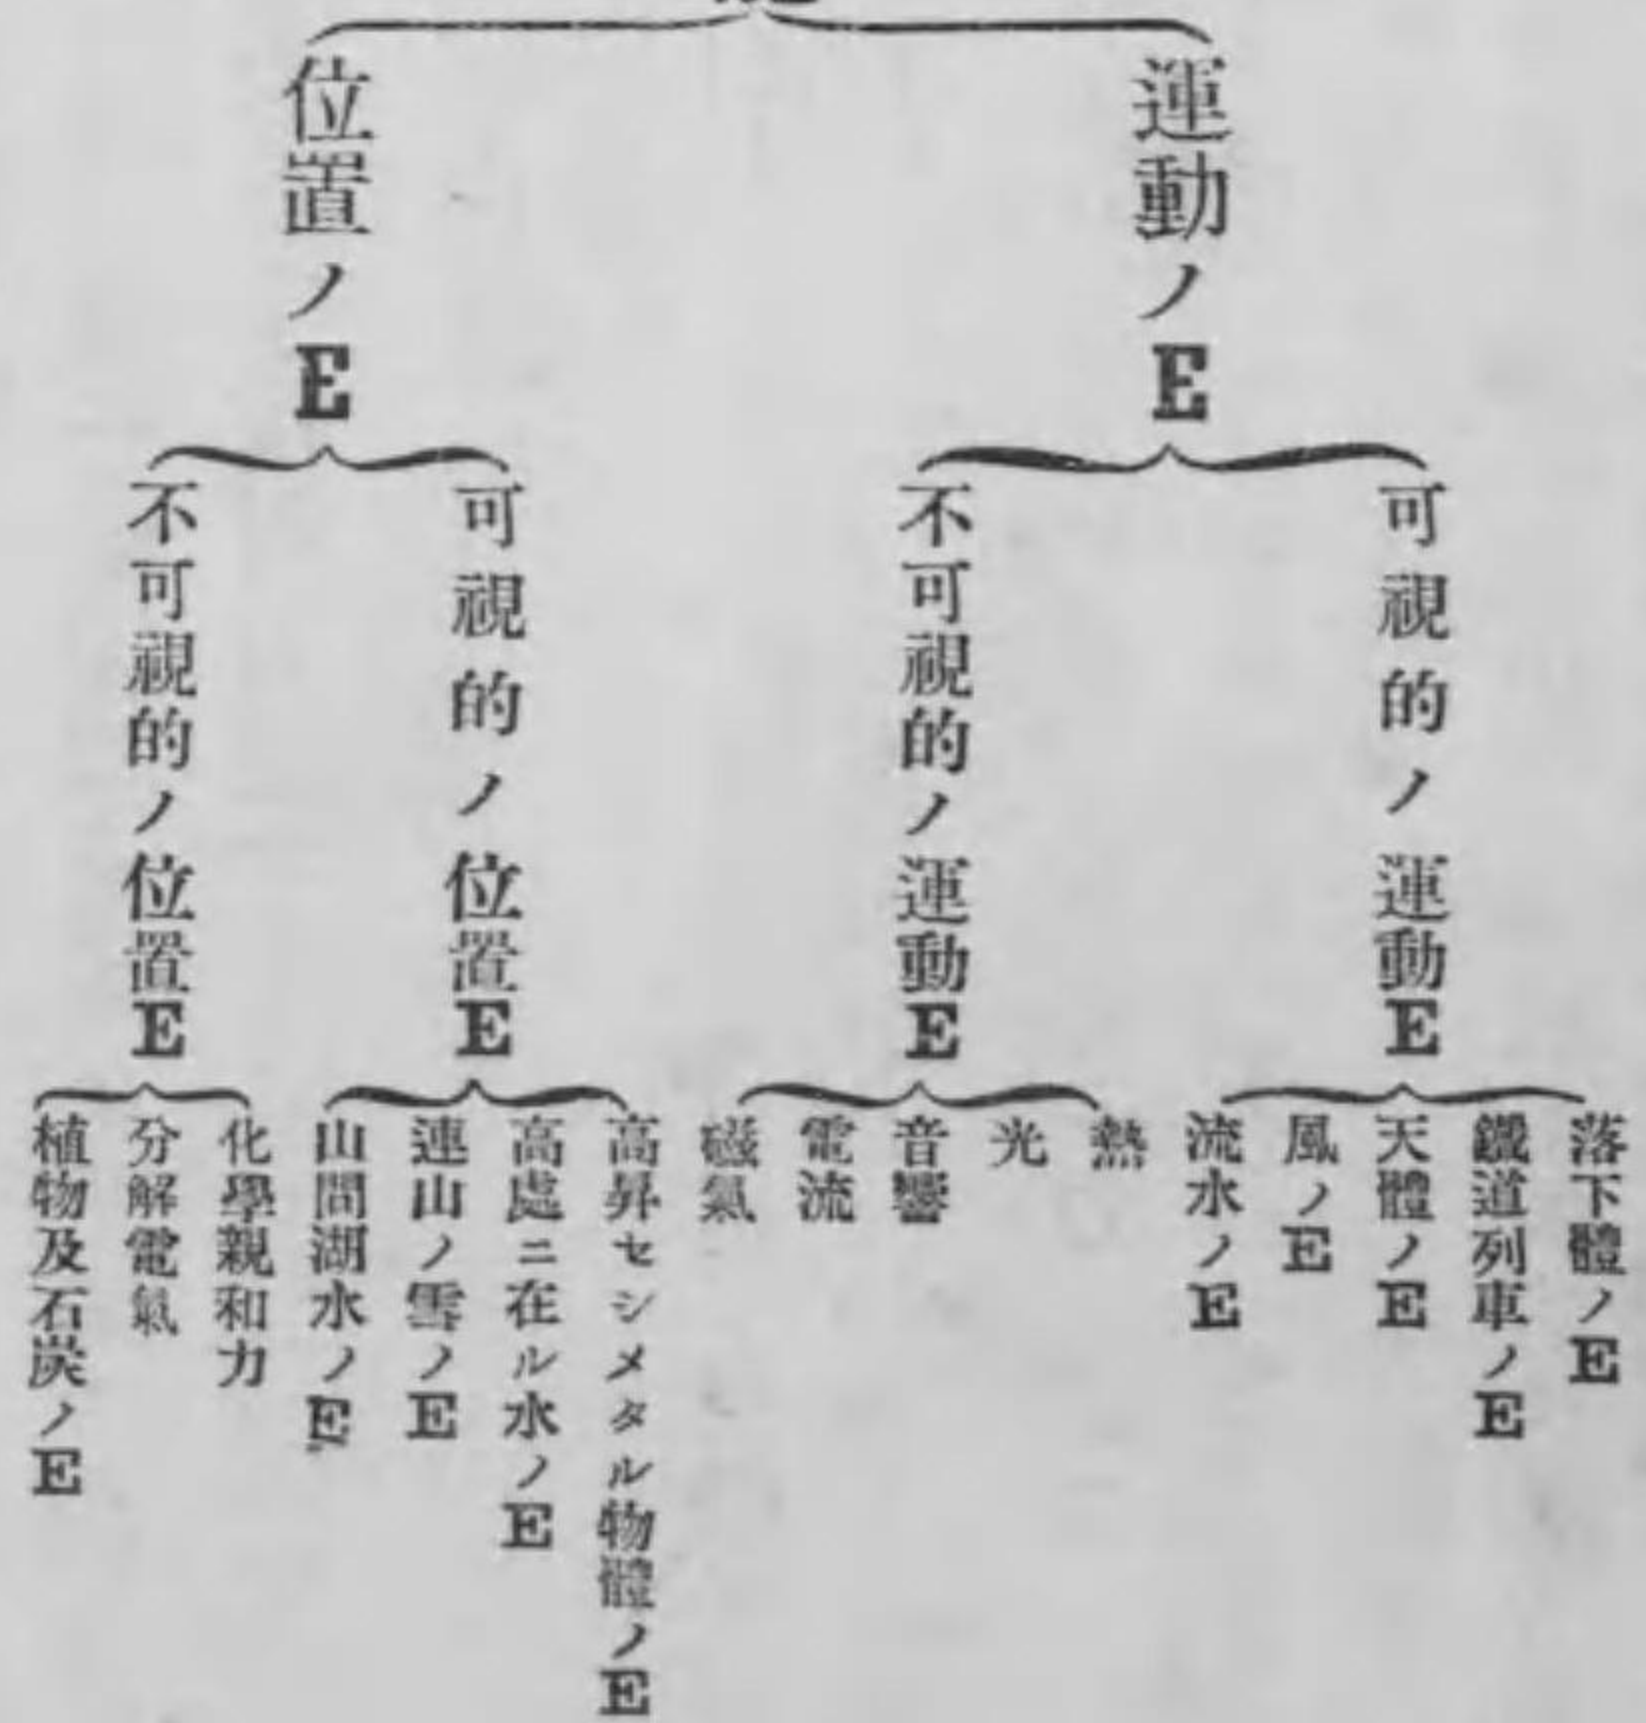 運動ノE
可視的ノ運動E
落下體ノE
鐵道列車ノE
天體ノE
風ノE
流水ノE
不可視的ノ運動E
熱
光
音響
電流
磁氣
位置ノE
可視的ノ位置E
高昇セシメタル物體ノE
高處ニ在ル水ノE
連山ノ雪ノE
山間湖水ノE
不可視的ノ位置E
化學親和力
分解電氣
植物及石炭ノE